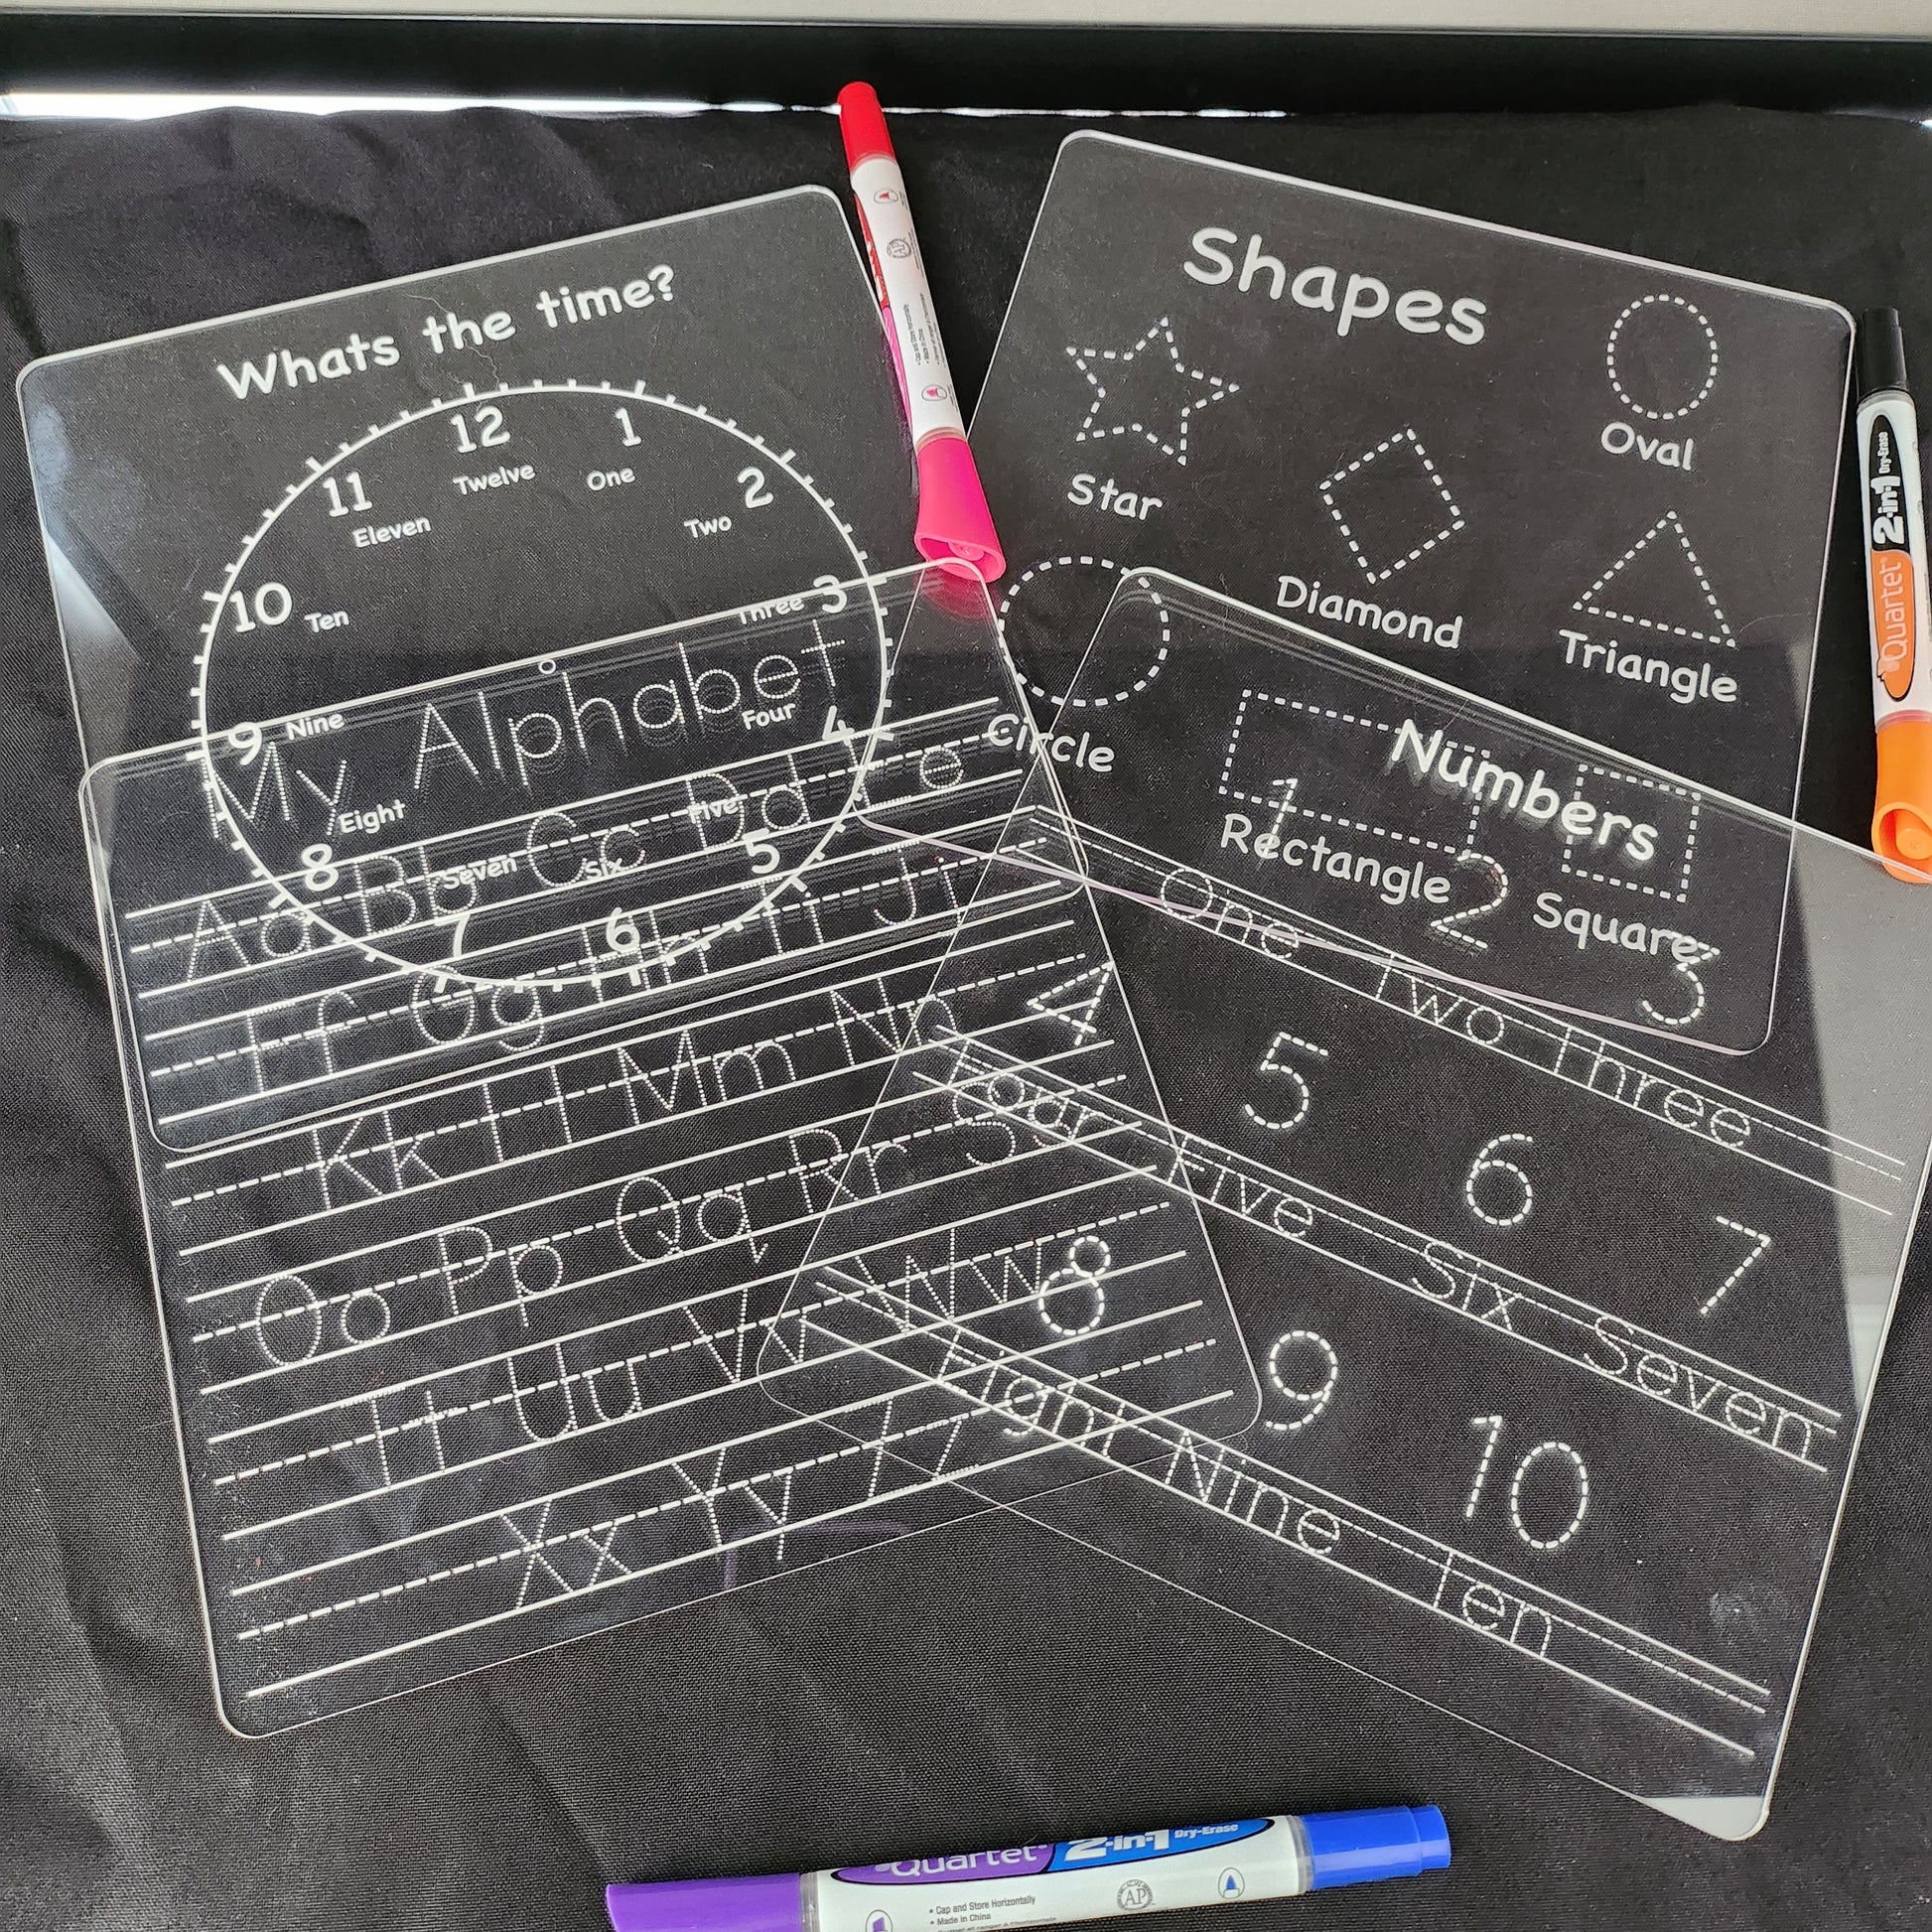 Whats the time?
12
Twelve
1
One
2
Two
3
Three
4
Four
5
Five
6
Six
7
Seven
8
Eight
9
Nine
10
Ten
11
Eleven
My Alphabet
Aa Bb Cc Dd Ee
Ff Gg Hh Ii Jj
Kk Ll Mm Nn
Oo Pp Qq Rr Ss
Tt Uu Vv Ww
Xx Yy Zz
Shapes
Star
Oval
Diamond
Triangle
Circle
Rectangle
Square
Numbers
1 2 3
One Two Three
4 5 6 7
Four Five Six Seven
8 9 10
Eight Nine Ten
Quartet 2-in-1 Dry-Erase
Quartet 2-in-1 Dry-Erase
AP
• Cap and Store Horizontally
• Made in China